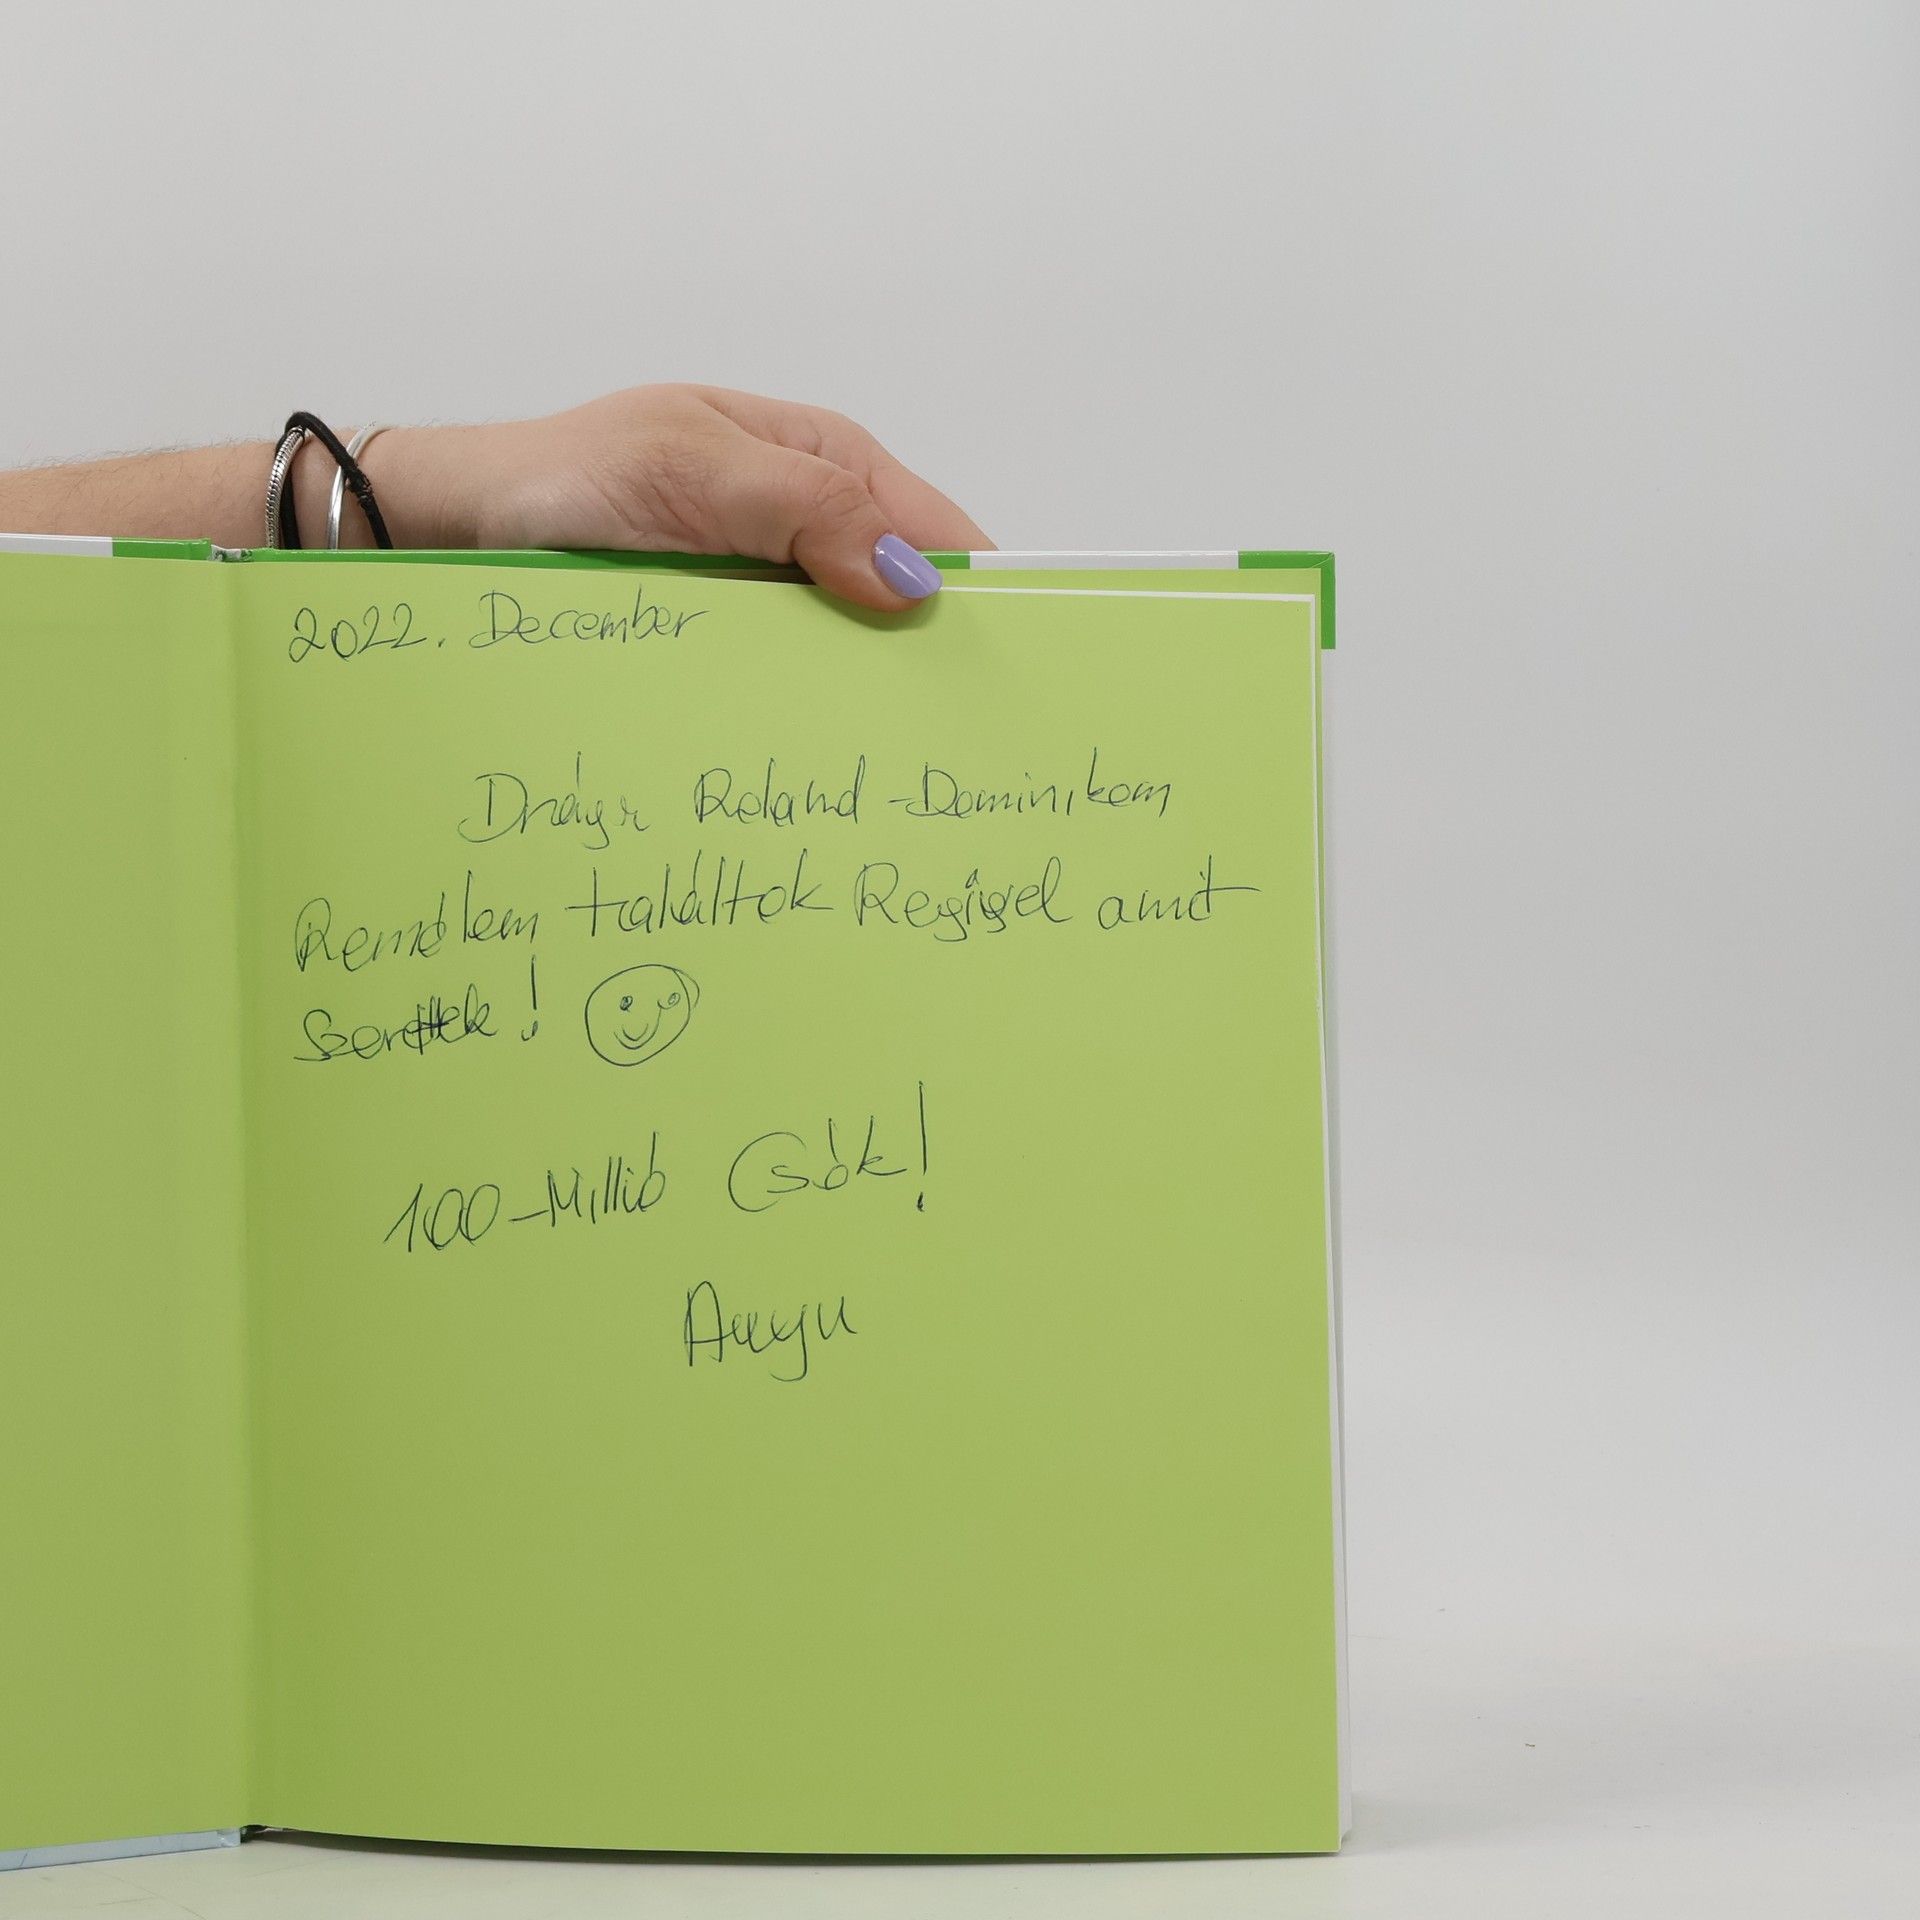 2022. December
Drága Roland-Dominikem
Remélem találtok Regivel amit
Szerettek!
100-Millió Csók!
Anyu